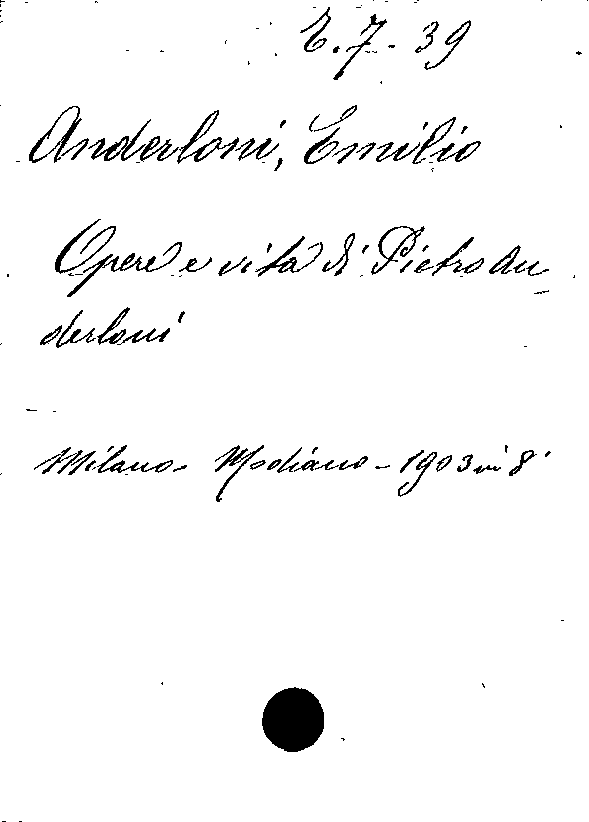 E.7-39
Anderloni, Emilio
Opere e vita di Pietro An-
derloni
Milano - Modiano - 1903 in 8°